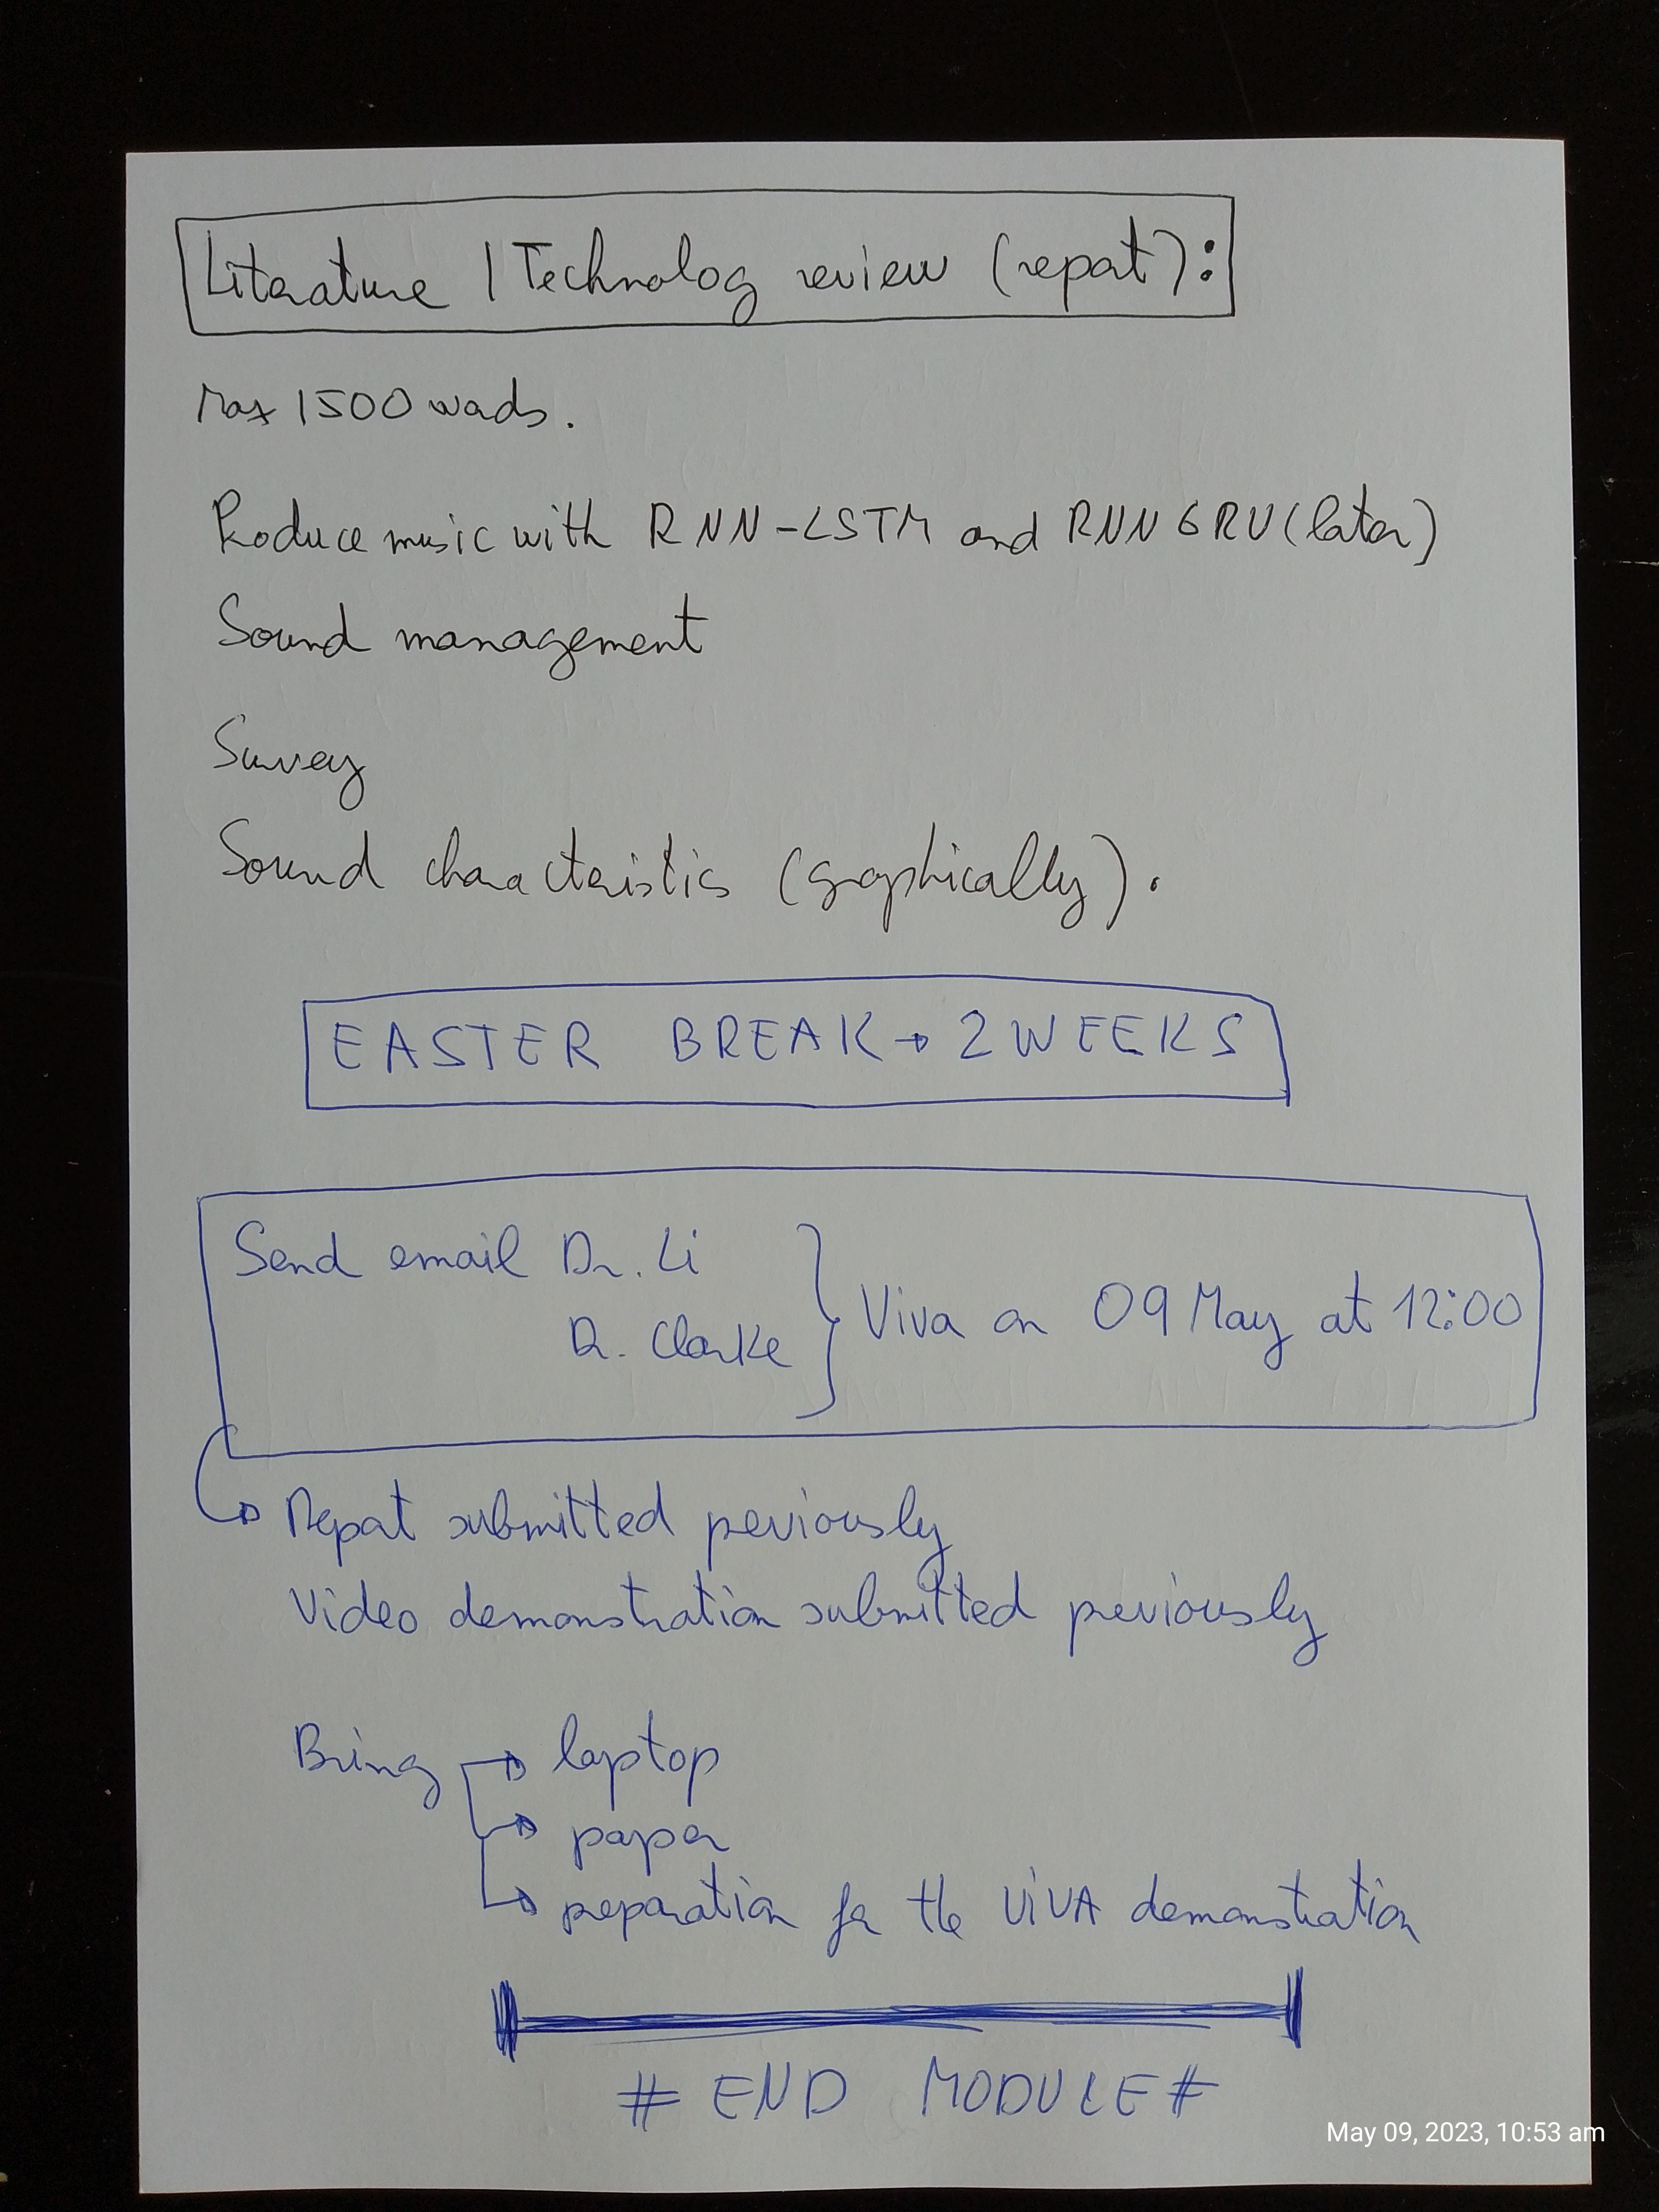 Literature / Technology review (report):
Max 1500 words.
Produce music with RNN-LSTM and RNN GRU (later)
Sound management
Survey
Sound characteristics (graphically).
EASTER BREAK → 2 WEEKS
Send email Dr. Li
Dr. Clarke } Viva on 09 May at 12:00
→ Report submitted previously
Video demonstration submitted previously
Bring → laptop
→ paper
→ preparation for the VIVA demonstration
# END MODULE #
May 09, 2023, 10:53 am